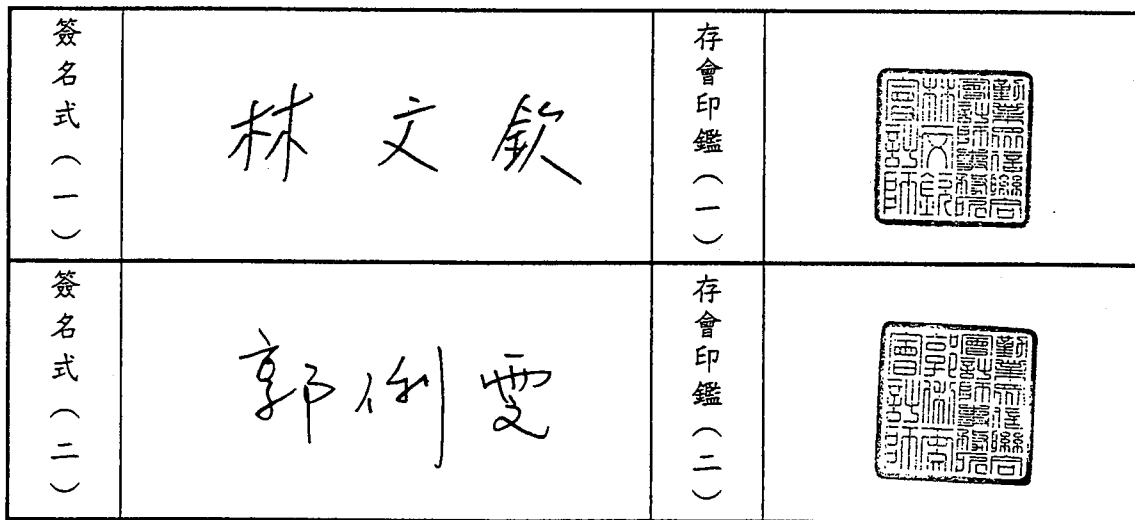 簽名式（一）
林文欽
存會印鑑（一）
勤業眾信聯合
會計師事務所
林文欽
會計師
簽名式（二）
郭俐雯
存會印鑑（二）
勤業眾信聯合
會計師事務所
郭俐雯
會計師